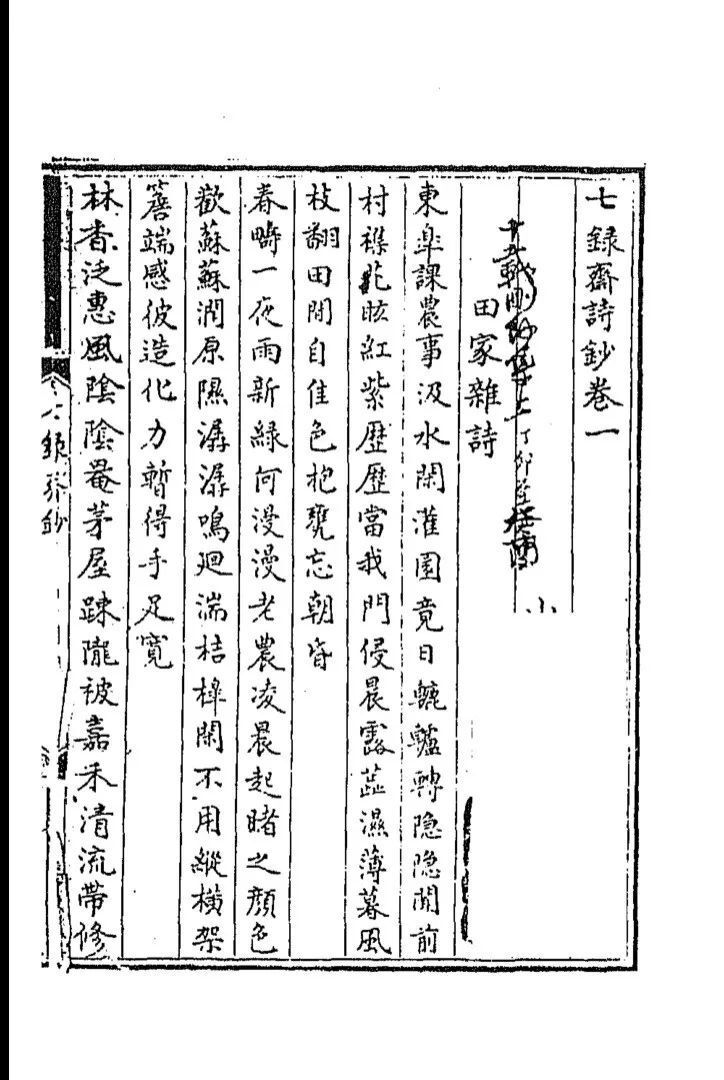 七錄齋詩鈔卷一
田家雜詩
東臯課農事汲水閑灌園竟日轆轤轉隐隐聞前
村穠花眩紅紫歷歷當我門侵晨露蕊濕薄暮風
枝翻田間自佳色抱甕忘朝昏
春疇一夜雨新緑何漫漫老農凌晨起睹之顔色
歡蘇蘇潤原隰潺潺鳴廻湍桔橰閑不用縱橫架
簷端感彼造化力暫得手足寬
林香泛惠風陰陰罨茅屋踈隴被嘉禾清流帶修
七錄齋鈔